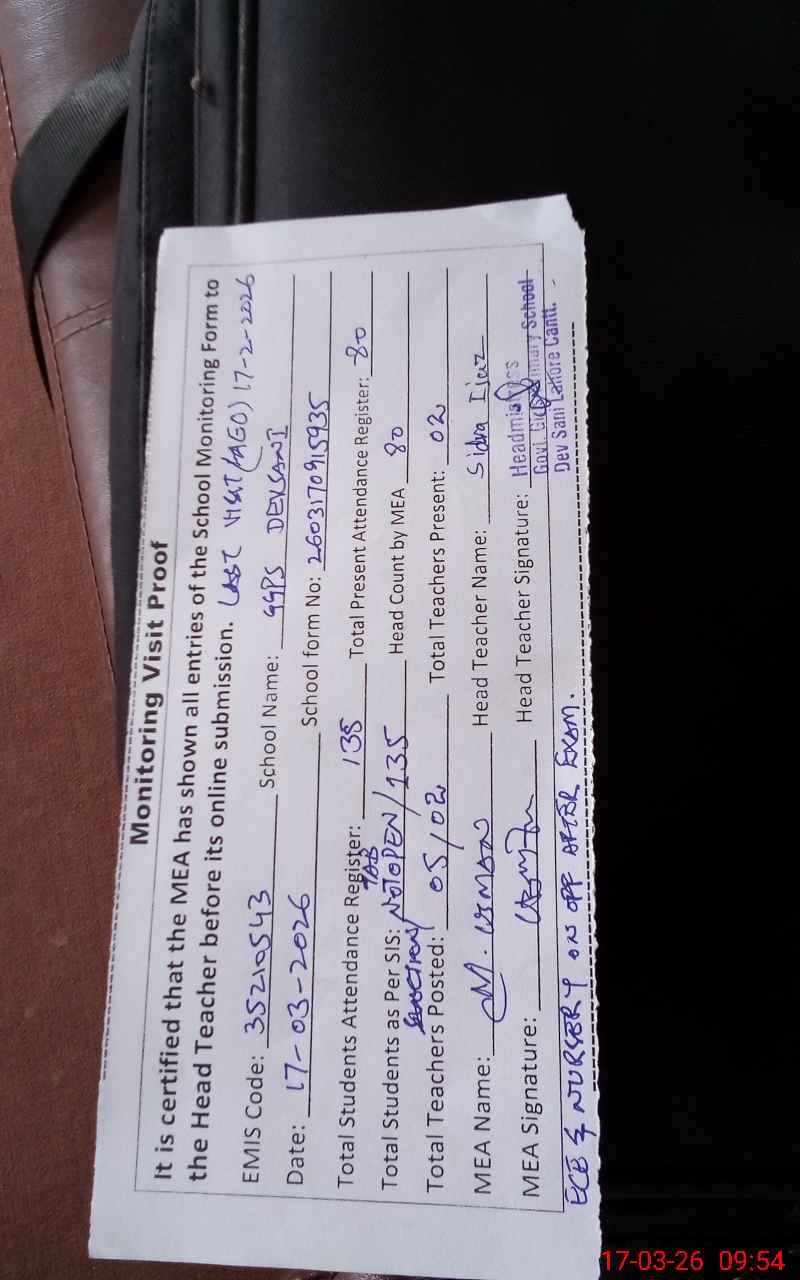 Monitoring Visit Proof
It is certified that the MEA has shown all entries of the School Monitoring Form to
the Head Teacher before its online submission. LAST VISIT (AEO) 17-2-2026
EMIS Code: 35210543 School Name: GGPS DEVSANI
Date: 17-03-2026 School form No: 2603170915935
Total Students Attendance Register: 135 Total Present Attendance Register: 80
TAB
Total Students as Per SIS: NOTOPEN/135 Head Count by MEA 80
SANCTION/
Total Teachers Posted: 05/02 Total Teachers Present: 02
MEA Name: M. USMAN Head Teacher Name: Sidra Ijaz
MEA Signature: Head Teacher Signature: Headmistress
Govt. Girls Primary School
Dev Sani Lahore Cantt.
ECE & NURSERY ON OFF AFTER EXAM.
17-03-26 09:54